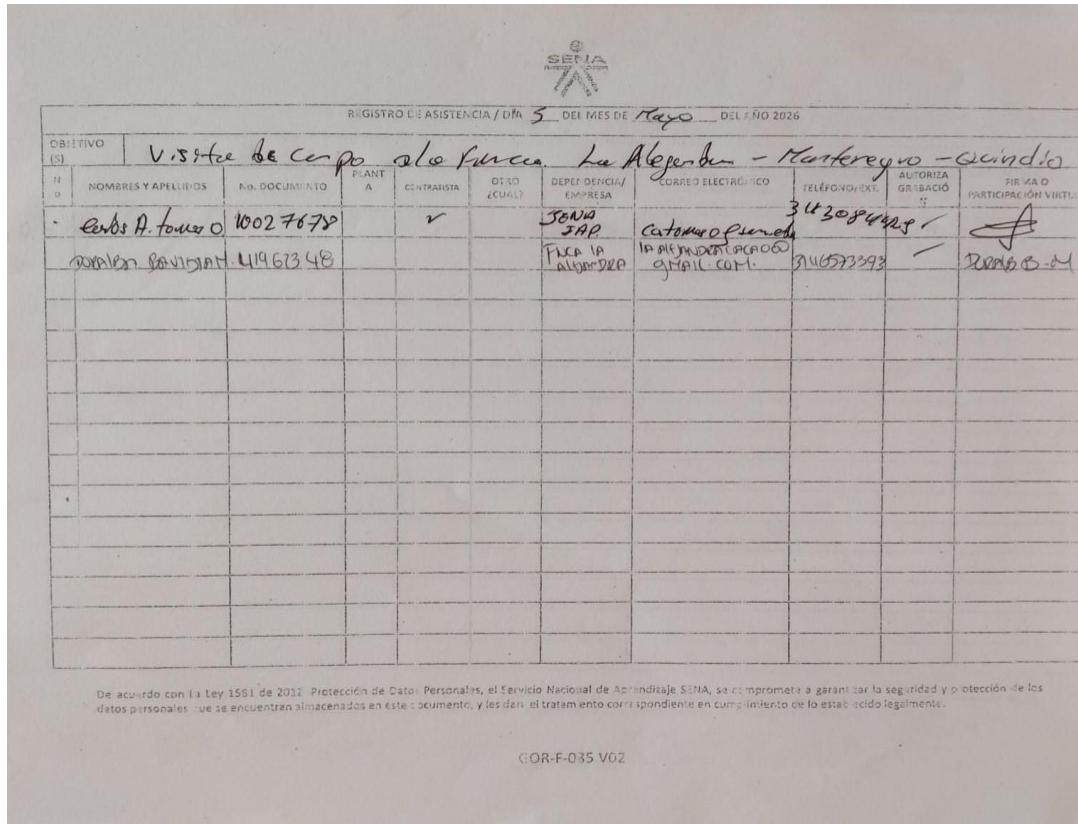 SENA
REGISTRO DE ASISTENCIA / DÍA 5 DEL MES DE Mayo DEL AÑO 2026
OBJETIVO (S) Visita de campo a la Finca. La - Montenegro - Quindio
NO NOMBRES Y APELLIDOS No. DOCUMENTO PLANTA CONTRATISTA OTRO ¿CUÁL? DEPENDENCIA/ EMPRESA CORREO ELECTRÓNICO TELÉFONO/EXT. AUTORIZA GRABACIÓ FIRMA O PARTICIPACIÓN VIRTU
Carlos A. 10027678 ✓ SENA
41962348 FINCA LA GMAIL.COM. 3146573393
De acuerdo con La Ley 1581 de 2012 Protección de Datos Personales, el Servicio Nacional de Aprendizaje SENA, se compromete a garantizar la seguridad y protección de los
datos personales que se encuentran almacenados en este documento, y les dará el tratamiento correspondiente en cumplimiento de lo establecido legalmente.
GOR-F-035 V02